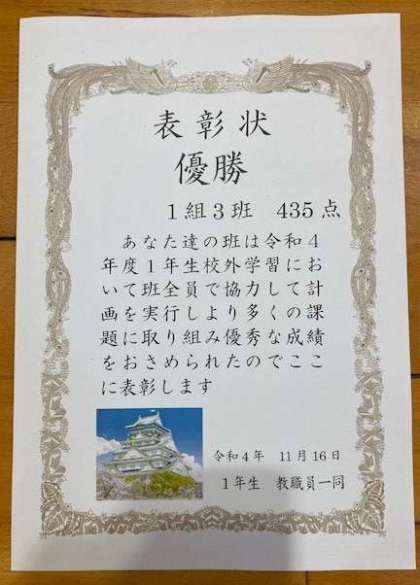 表彰状
優勝
1組3班　435点
あなた達の班は令和4
年度1年生校外学習にお
いて班全員で協力して計
画を実行しより多くの課
題に取り組み優秀な成績
をおさめられたのでここ
に表彰します
令和4年　11月16日
1年生　教職員一同